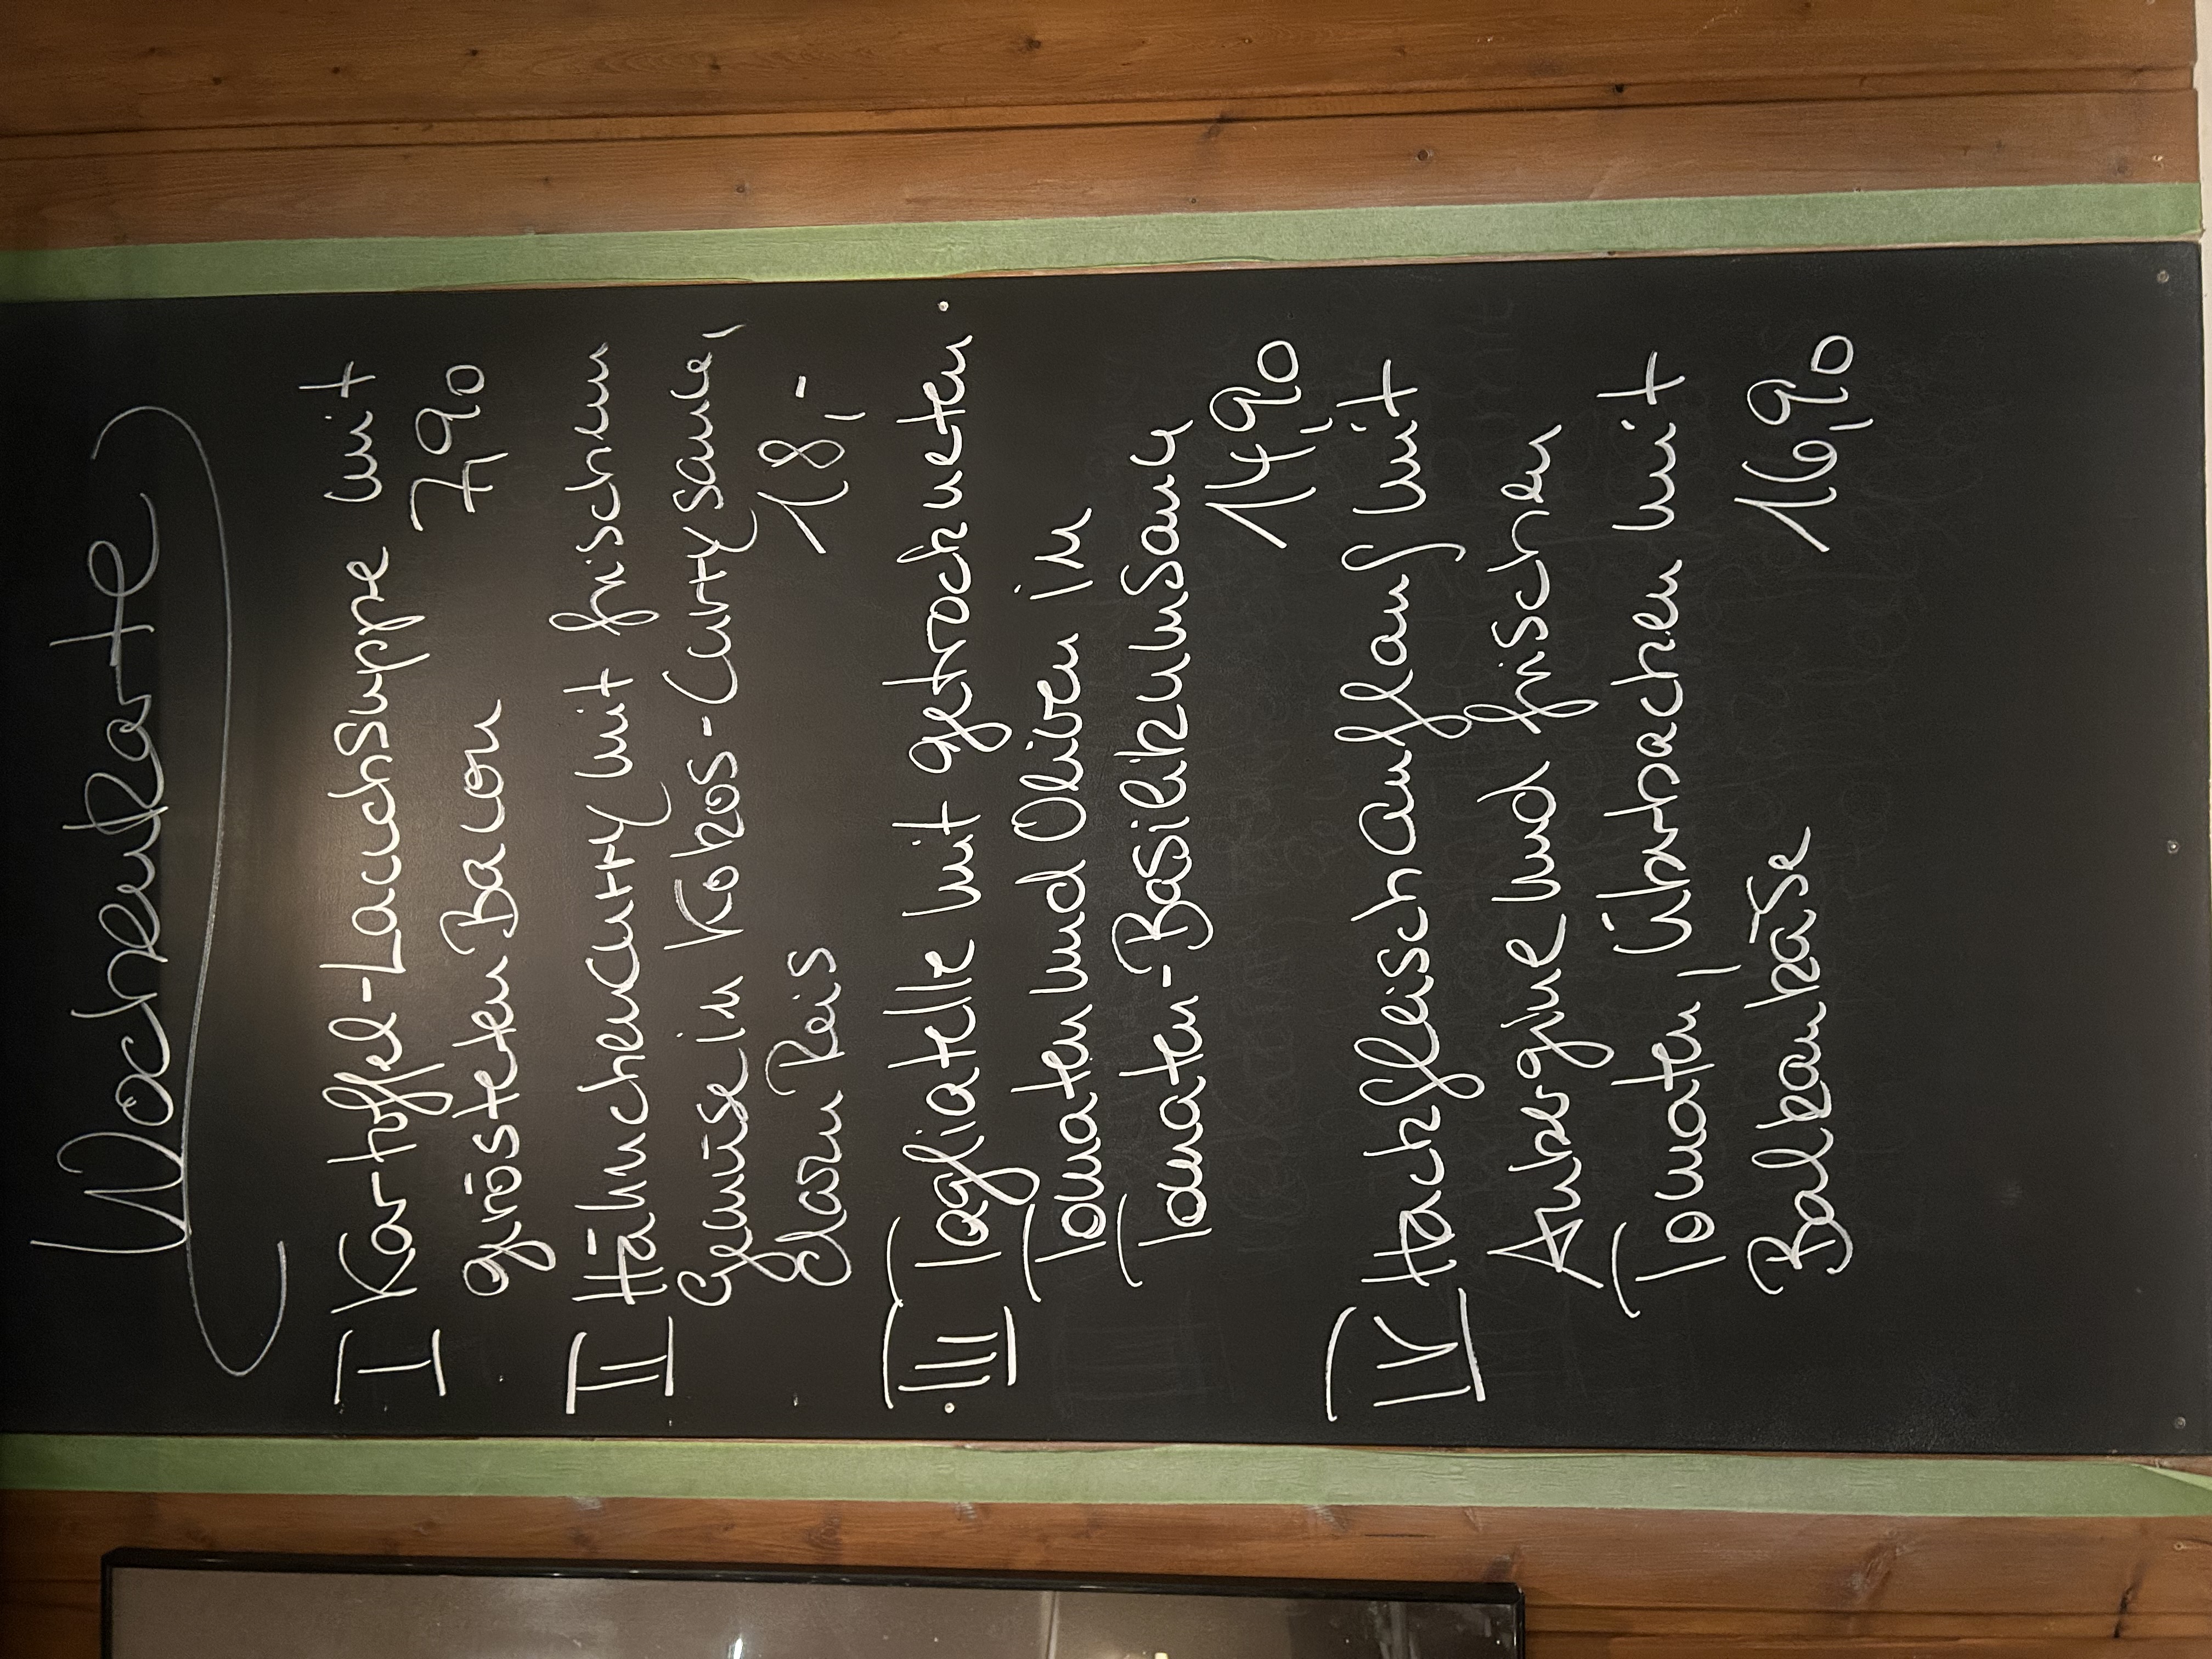 Wochenkarte
I Kartoffel-Lauchsuppe mit
gerösteten Bacon 7,90
II Hähnchencurry mit frischem
Gemüse in Kokos-Currysauce,
dazu Reis 18,-
III Tagliatelle mit getrockneten
Tomaten und Oliven in
Tomaten-Basilikumsauce
14,90
IV Hackfleischauflauf mit
Aubergine und frischen
Tomaten, überbacken mit
Balkankäse 16,90